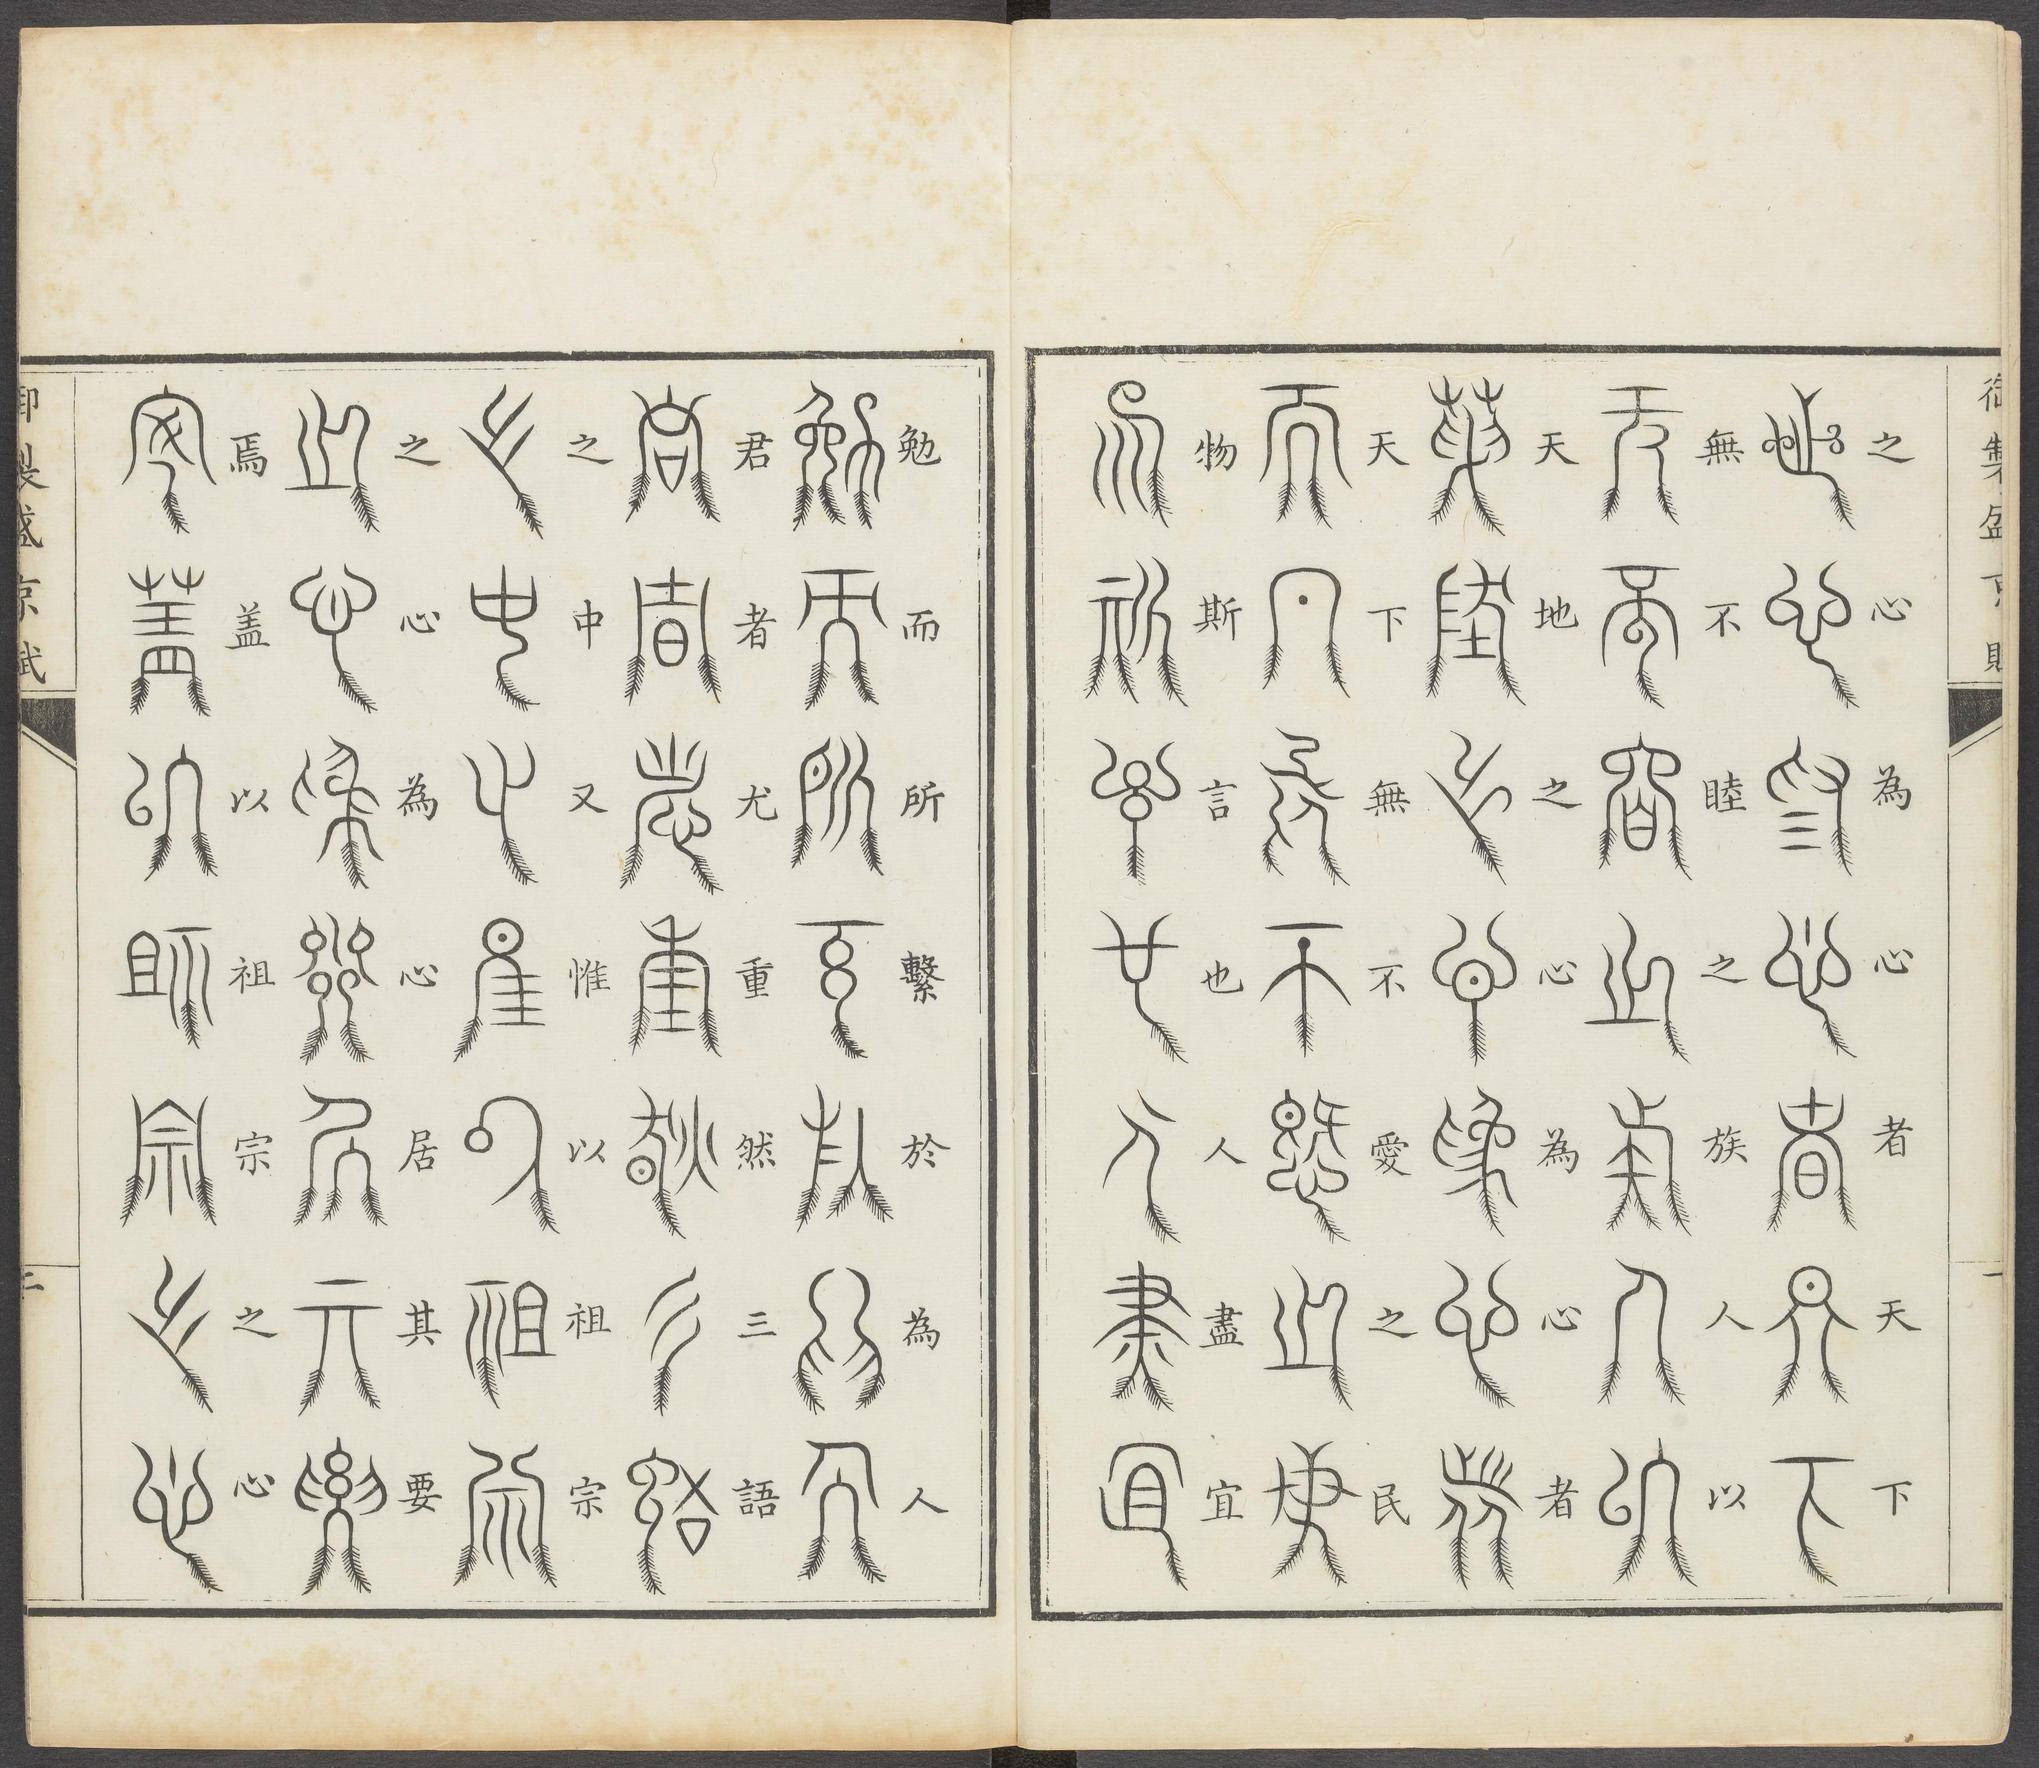 御製盛京賦
一
之心為心者天下
無不睦之族人以
天地之心為心者
天下無不愛之民
物斯言也人盡宜
勉而所繫於為人
君者尤重然三語
之中又惟以祖宗
之心為心居其要
焉盖以祖宗之心
御製盛京賦
二